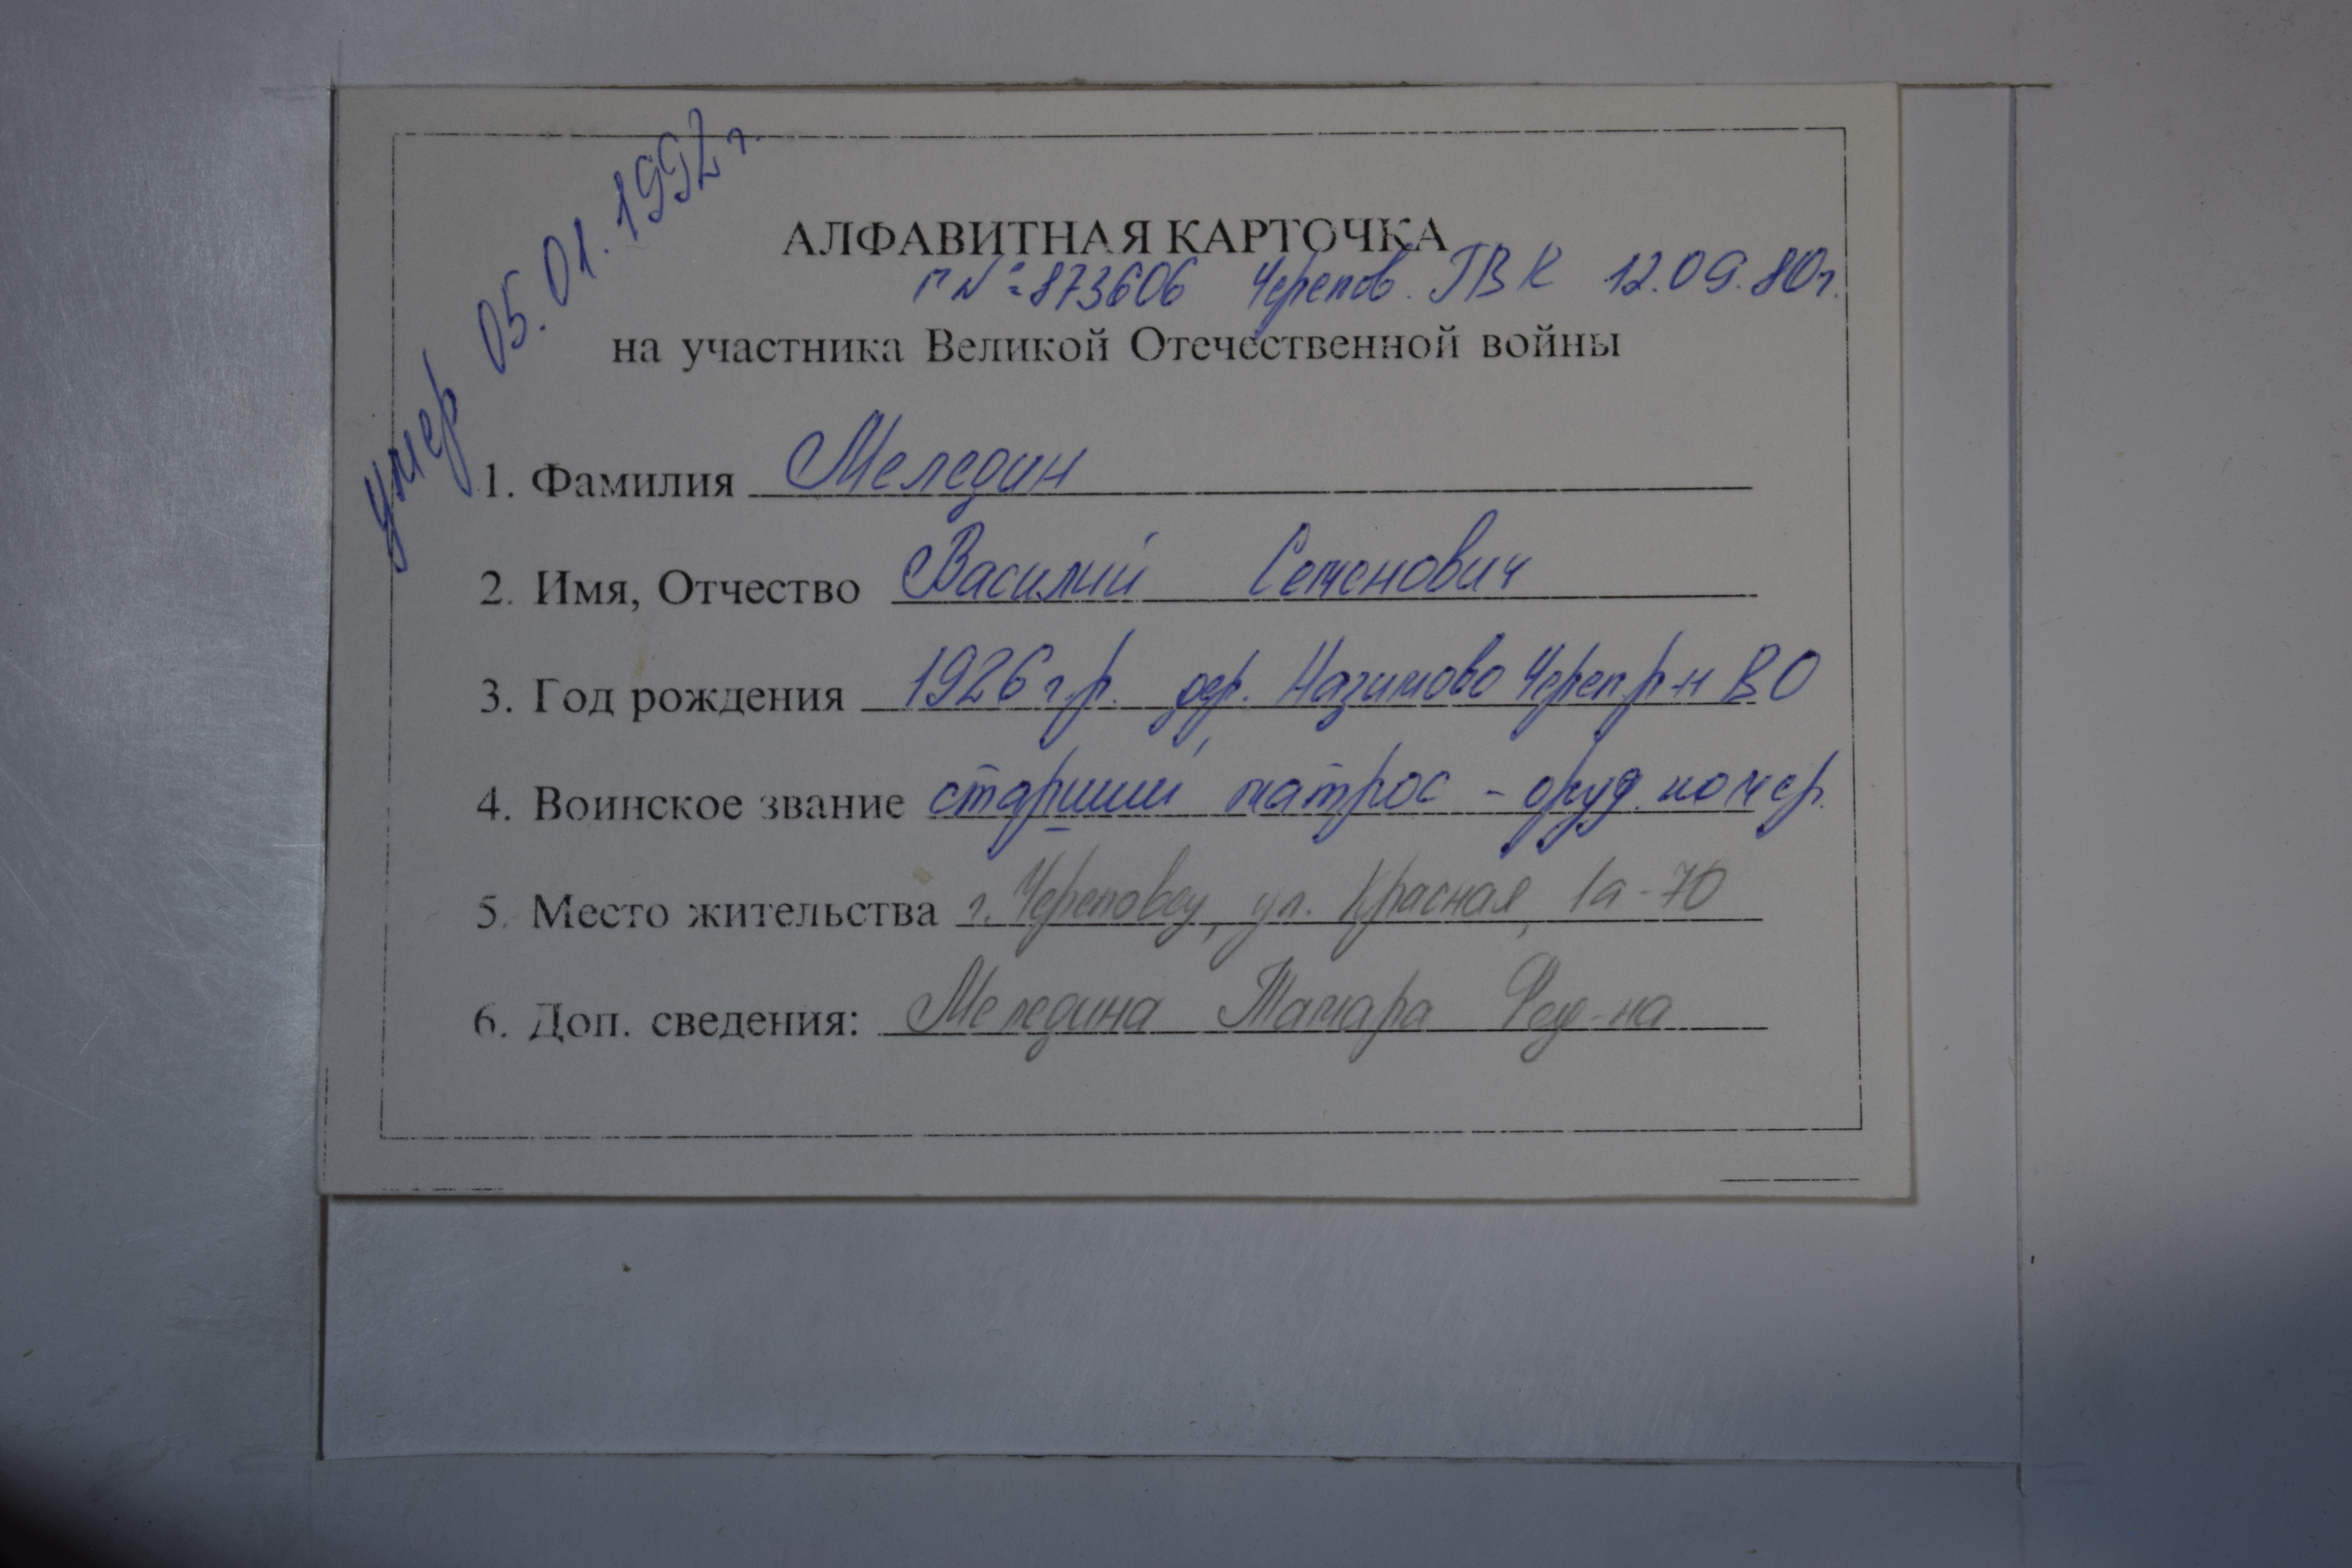 умер 05.01.1992 г.
АЛФАВИТНАЯ КАРТОЧКА
Г № 873606 Черепов. ГВК 12.09.80г.
на участника Великой Отечественной войны
1. Фамилия Меледин
2. Имя, Отчество Василий Семенович
3. Год рождения 1926 г.р. дер. Назимово Череп р-н ВО
4. Воинское звание старший матрос - оруд. номер.
5. Место жительства г. Череповец, ул. Красная, 1а-70
6. Доп. сведения: Меледина Тамара Фед-на